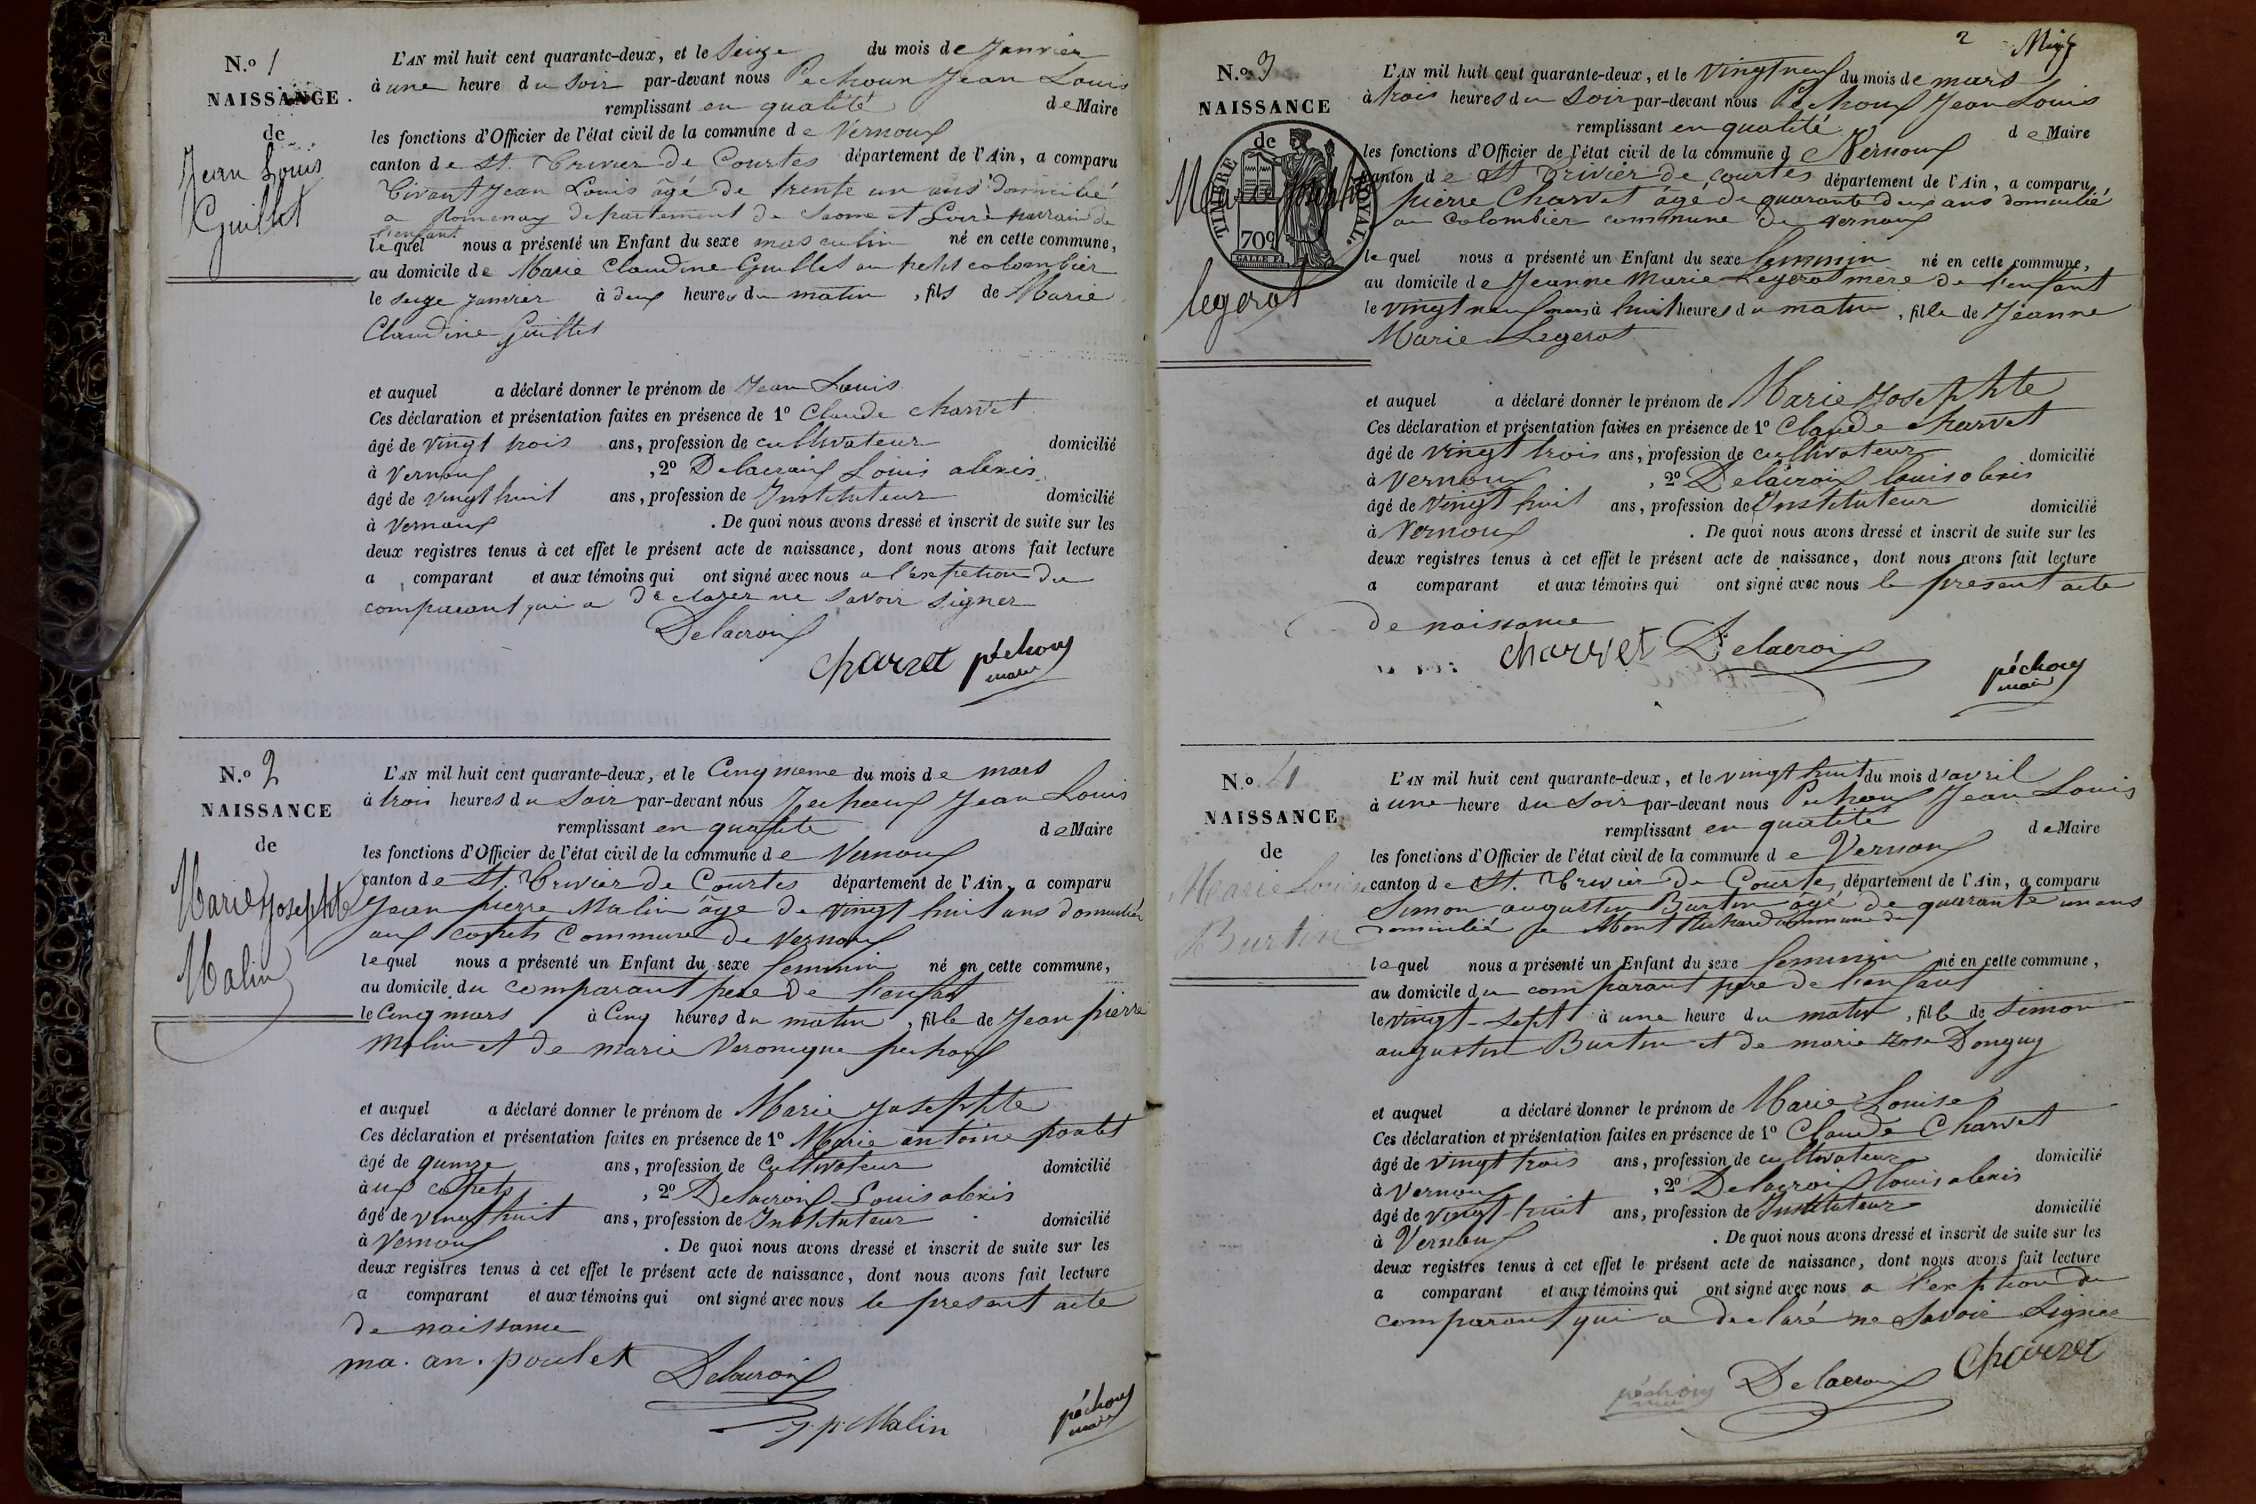 N.º 1
NAISSANCE
de
Jean Louis
Guillet
L'AN mil huit cent quarante-deux, et le Seize du mois de Janvier
à une heure du soir par-devant nous Pechoux Jean Louis
remplissant en qualité de Maire
les fonctions d'Officier de l'état civil de la commune de Vernoux
canton de St. Trivier de Courtes département de l'Ain, a comparu
Jean Louis âgé de trente un ans domicilié
a Romenay departement de Saone et Loire parrain de
l'enfant
lequel nous a présenté un Enfant du sexe masculin né en cette commune,
au domicile de Marie Claudine Guillet au petit colombier
le seize janvier à deux heures du matin, fils de Marie
Claudine Guillet
et auquel a déclaré donner le prénom de Jean Louis
Ces déclaration et présentation faites en présence de 1º Claude charvet
âgé de vingt trois ans, profession de cultivateur domicilié
à Vernoux, 2º Delacroix Louis alexis
âgé de vingt huit ans, profession de Instituteur domicilié
à Vernoux. De quoi nous avons dressé et inscrit de suite sur les
deux registres tenus à cet effet le présent acte de naissance, dont nous avons fait lecture
a comparant et aux témoins qui ont signé avec nous a l'exception du
comparant qui a declarer ne savoir signer
Delacroix
charvet péchoux
maire
N.º 2
NAISSANCE
de
Marie Josephte
Malin
L'AN mil huit cent quarante-deux, et le Cinquieme du mois de mars
à trois heures du Soir par-devant nous Pechoux Jean Louis
remplissant en qualité de Maire
les fonctions d'Officier de l'état civil de la commune de Vernoux
canton de St. Trivier de Courtes département de l'Ain, a comparu
Jean pierre Malin âge de vingt huit ans domicilié
aux commune de Vernoux
lequel nous a présenté un Enfant du sexe feminin né en cette commune,
au domicile du comparant pere de l'enfant
le Cinq mars à Cinq heures du matin, fille de Jean pierre
Malin et de marie Veronique pechoux
et auquel a déclaré donner le prénom de Marie Josephte
Ces déclaration et présentation faites en présence de 1º Marie antoine poulet
âgé de quinze ans, profession de Cultivateur domicilié
à aux, 2º Delacroix Louis alexis
âgé de vingt huit ans, profession de Instituteur domicilié
à Vernoux. De quoi nous avons dressé et inscrit de suite sur les
deux registres tenus à cet effet le présent acte de naissance, dont nous avons fait lecture
a comparant et aux témoins qui ont signé avec nous le present acte
de naissance
ma. an. poulet Delacroix
j. p. Malin péchoux
maire
2
N.º 3
NAISSANCE
de
Marie Josephte
legerot
TIMBRE ROYAL.
70c
L'AN mil huit cent quarante-deux, et le Vingt neuf du mois de mars
à trois heures du Soir par-devant nous Pechoux Jean Louis
remplissant en qualité de Maire
les fonctions d'Officier de l'état civil de la commune de Vernoux
canton de St Trivier de courtes département de l'Ain, a comparu
pierre Charvet âgé de quarante deux ans domicilié
au Colombier commune de vernoux
lequel nous a présenté un Enfant du sexe feminin né en cette commune,
au domicile de Jeanne Marie Legerot mère de l'enfant
le vingt neuf mars à huit heures du matin, fille de Jeanne
Marie Legerot
et auquel a déclaré donner le prénom de Marie Josephte
Ces déclaration et présentation faites en présence de 1º Claude charvet
âgé de vingt trois ans, profession de cultivateur domicilié
à Vernoux, 2º Delacroix louis alexis
âgé de vingt huit ans, profession de Instituteur domicilié
à Vernoux. De quoi nous avons dressé et inscrit de suite sur les
deux registres tenus à cet effet le présent acte de naissance, dont nous avons fait lecture
a comparant et aux témoins qui ont signé avec nous le present acte
de naissance
charvet Delacroix
péchoux
maire
N.º 4
NAISSANCE
de
Marie Louise
Burtin
L'AN mil huit cent quarante-deux, et le vingt huit du mois d'avril
à une heure du Soir par-devant nous Pechoux Jean Louis
remplissant en qualité de Maire
les fonctions d'Officier de l'état civil de la commune de Vernoux
canton de St. Trivier de Courtes département de l'Ain, a comparu
Simon augustin Burtin âgé de quarante un ans
domicilié a Mont Richard commune du
lequel nous a présenté un Enfant du sexe feminin né en cette commune,
au domicile du comparant pere de l'enfant
le vingt-sept à une heure du matin, fille de Simon
augustin Burtin et de marie Rose Donguy
et auquel a déclaré donner le prénom de Marie Louise
Ces déclaration et présentation faites en présence de 1º Claude Charvet
âgé de vingt trois ans, profession de cultivateur domicilié
à Vernoux, 2º Delacroix louis alexis
âgé de vingt huit ans, profession de Instituteur domicilié
à Vernoux. De quoi nous avons dressé et inscrit de suite sur les
deux registres tenus à cet effet le présent acte de naissance, dont nous avons fait lecture
a comparant et aux témoins qui ont signé avec nous a l'exption du
comparant qui a declaré ne Savoir Signer
péchoux Delacroix charvet
maire